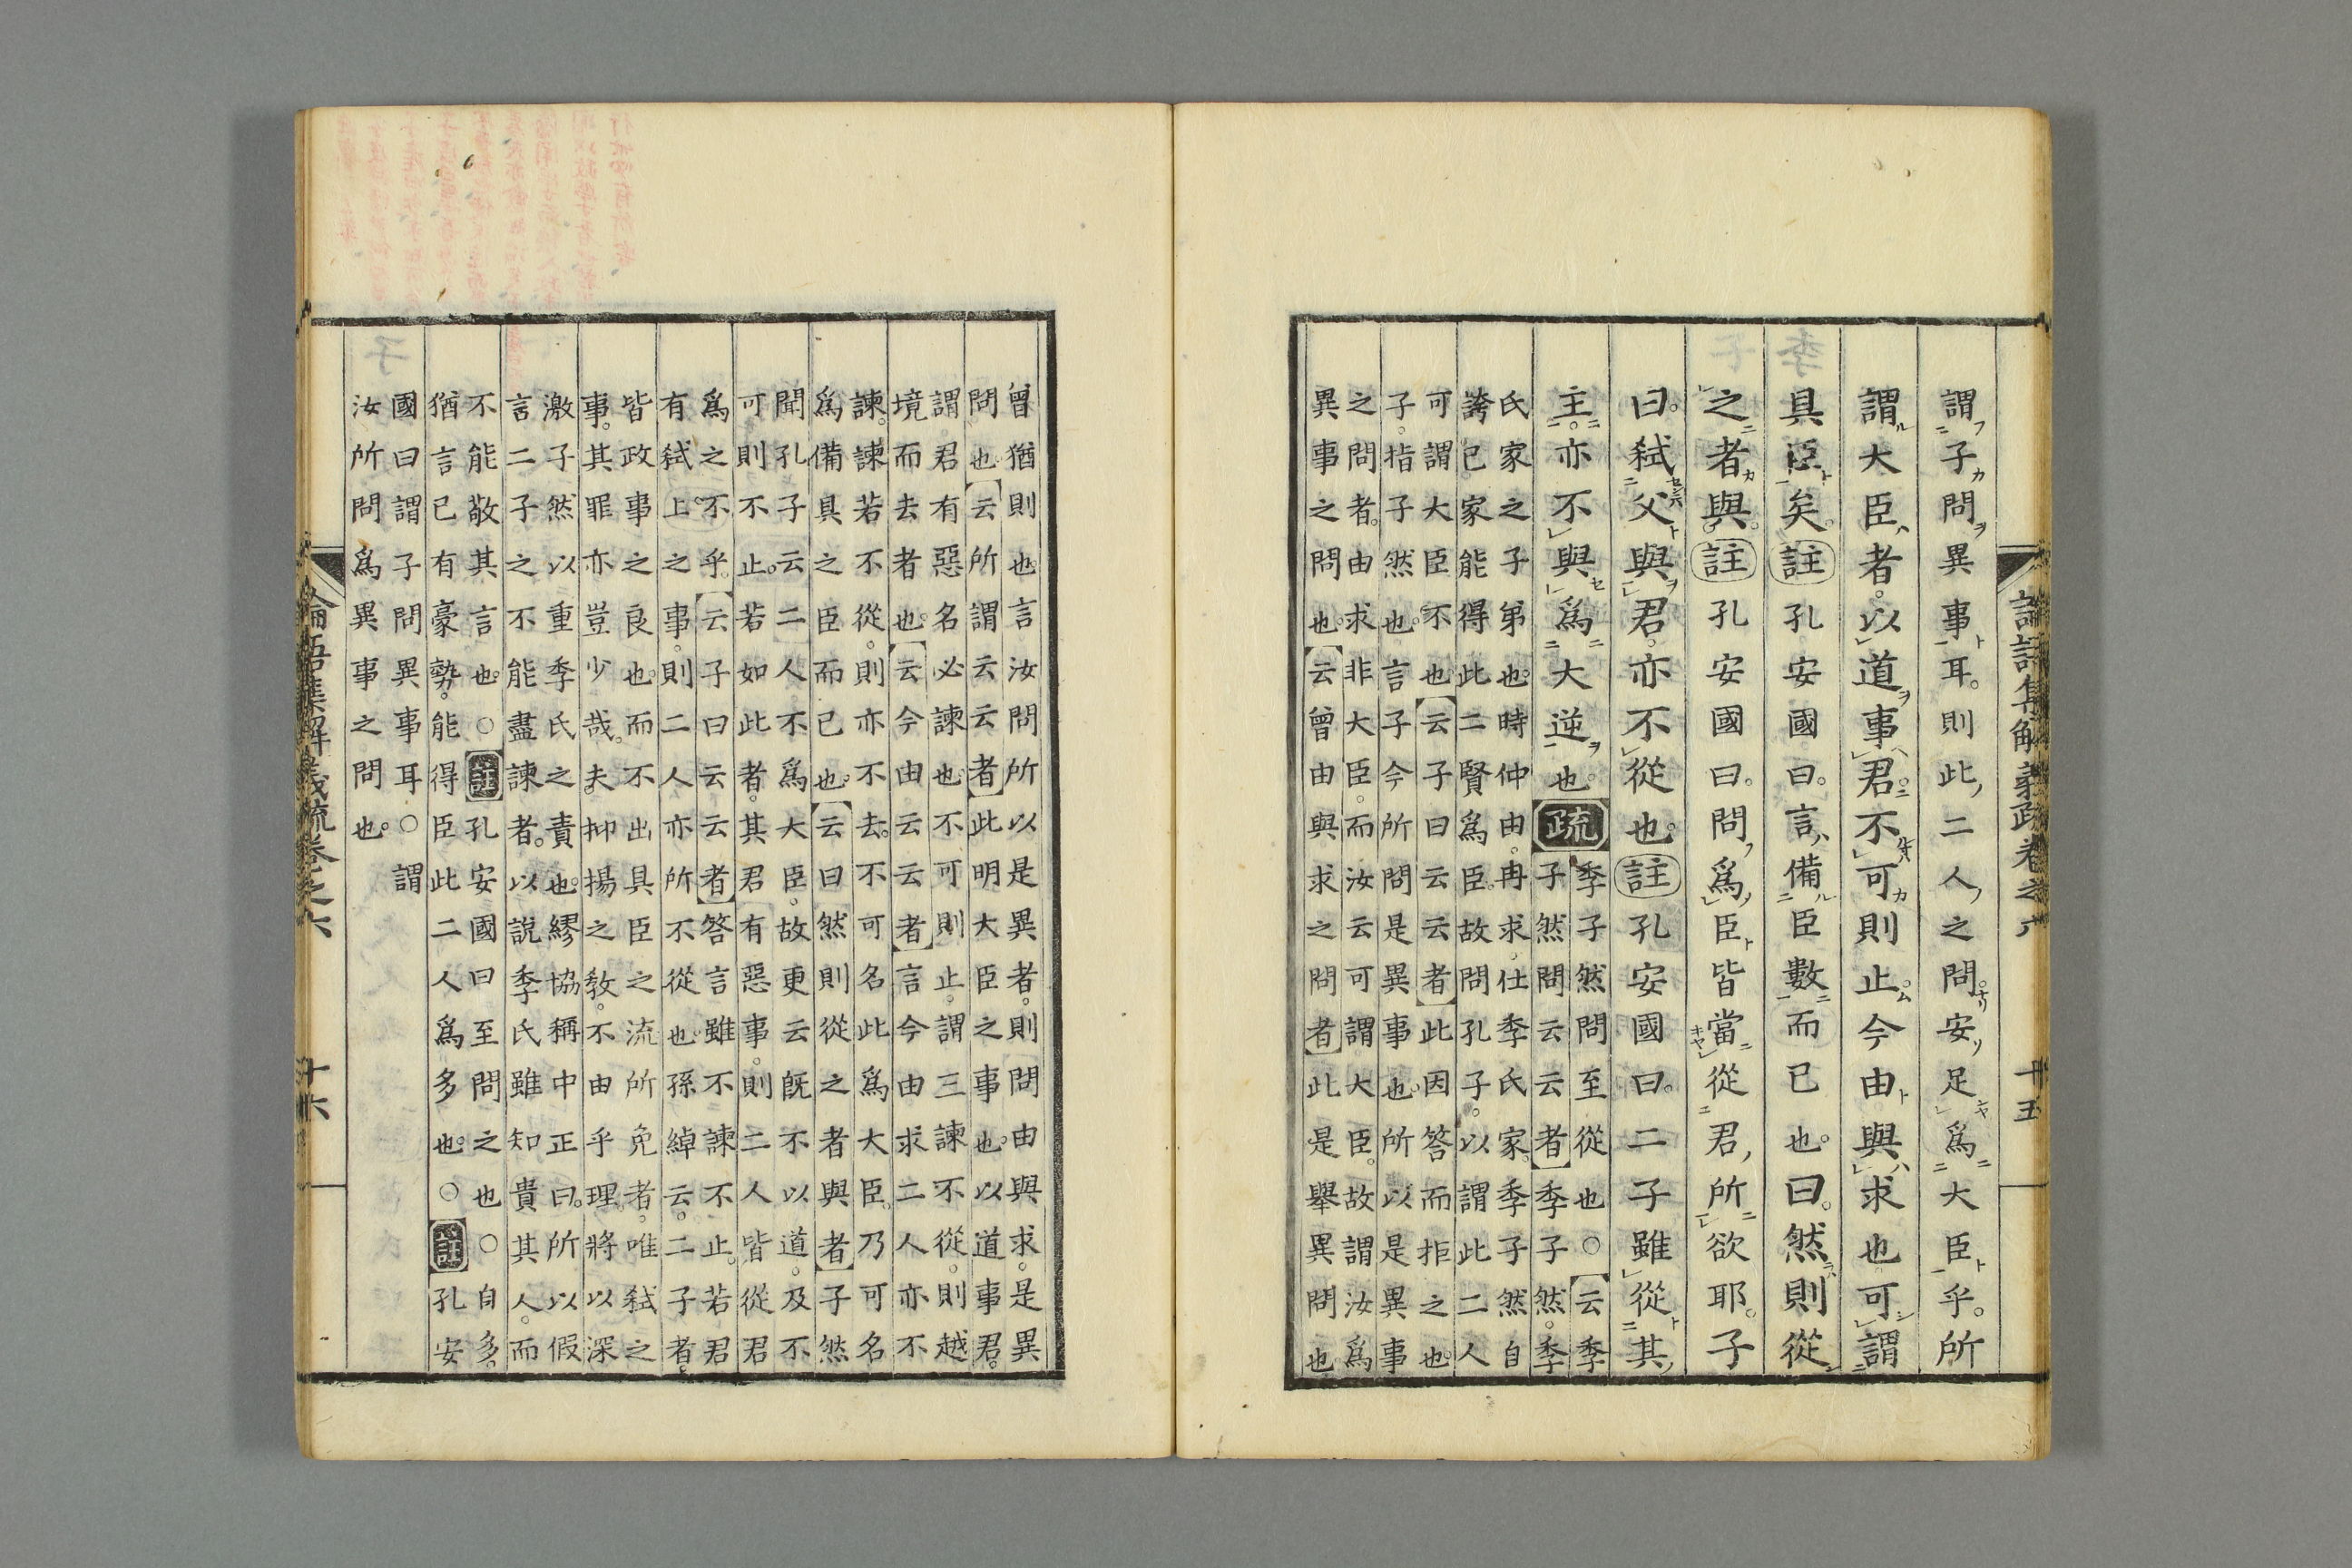 論語集解義疏卷之六　十五
謂子問異事耳。則此二人之問安足爲大臣乎。所
謂大臣者。以道事君。不可則止。今由與求也可謂
具臣矣。註孔安國曰。言備臣數而已也。曰。然則從
之者與。註孔安國曰。問爲臣皆當從君所欲耶。子
曰。弑父與君。亦不從也。註孔安國曰。二子雖從其
主。亦不與爲大逆也。疏
季子然問至從也○【云季
子然問云云者】季子然。季
氏家之子弟也。時仲由。冉求。仕季氏家。季子然自
誇已家能得此二賢爲臣。故問孔子。以謂此二人
可謂大臣不也【云子曰云云者】此因答而拒之也。
子。指子然也。言子今所問是異事也。所以是異事
之問者。由求非大臣。而汝云可謂大臣。故謂汝爲
異事之問也。【云曾由與求之問者】此是舉異問也
曾猶則也言汝問所以是異者。則問由與求。是異
問也。【云所謂云云者】此明大臣之事也。以道事君。
謂君有惡名必諫也。不可則止。謂三諫不從。則越
境而去者也。【云今由云云者】言今由求二人亦不
諫。諫若不從。則亦不去。不可名此爲大臣。乃可名
爲備具之臣而已也。【云曰然則從之者與者】子然
聞孔子云二人不爲大臣。故更云既不以道。及不
可則不止。若如此者。其君有惡事。則二人皆從君
爲之不乎。【云子曰云云者】答言雖不諫不止。若君
有弑上之事。則二人亦所不從也。孫綽云。二子者。
皆政事之良也。而不出具臣之流所免者。唯弑之
事。其罪亦豈少哉。夫抑揚之教。不由乎理。將以深
激子然以重季氏之責也。繆協稱中正曰。所以假
言二子之不能盡諫者。以說季氏雖知貴其人。而
不能敬其言也。○註孔安國曰至問之也○自多。
猶言已有豪勢。能得臣此二人爲多也。○註孔安
國曰謂子問異事耳○謂
汝所問爲異事之問也。
論語集解義疏卷之六　十六